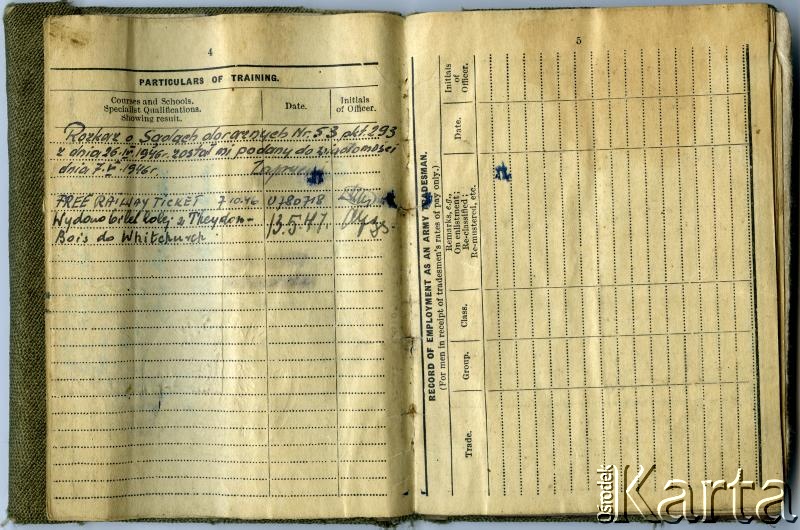 4
PARTICULARS OF TRAINING.
Courses and Schools. Specialist Qualifications. Showing result.
Date.
Initials of Officer.
Rozkaz o Sądach doraźnych Nr. 53 pkt. 293
z dnia 26.IV 1946r. został mi podany do wiadomości
dnia 7.V 1946r.
FREE RAILWAY TICKET 7.10.46 0780718
Wydano bilet kolej. z Theydon- 13.5.47
Bois do Whitchurch.
5
RECORD OF EMPLOYMENT AS AN ARMY TRADESMAN.
(For men in receipt of tradesmen's rates of pay only.)
Trade.
Group.
Class.
Remarks, e.g., On enlistment; Re-classified; Re-mustered, etc.
Date.
Initials of Officer.
Ośrodek
Karta